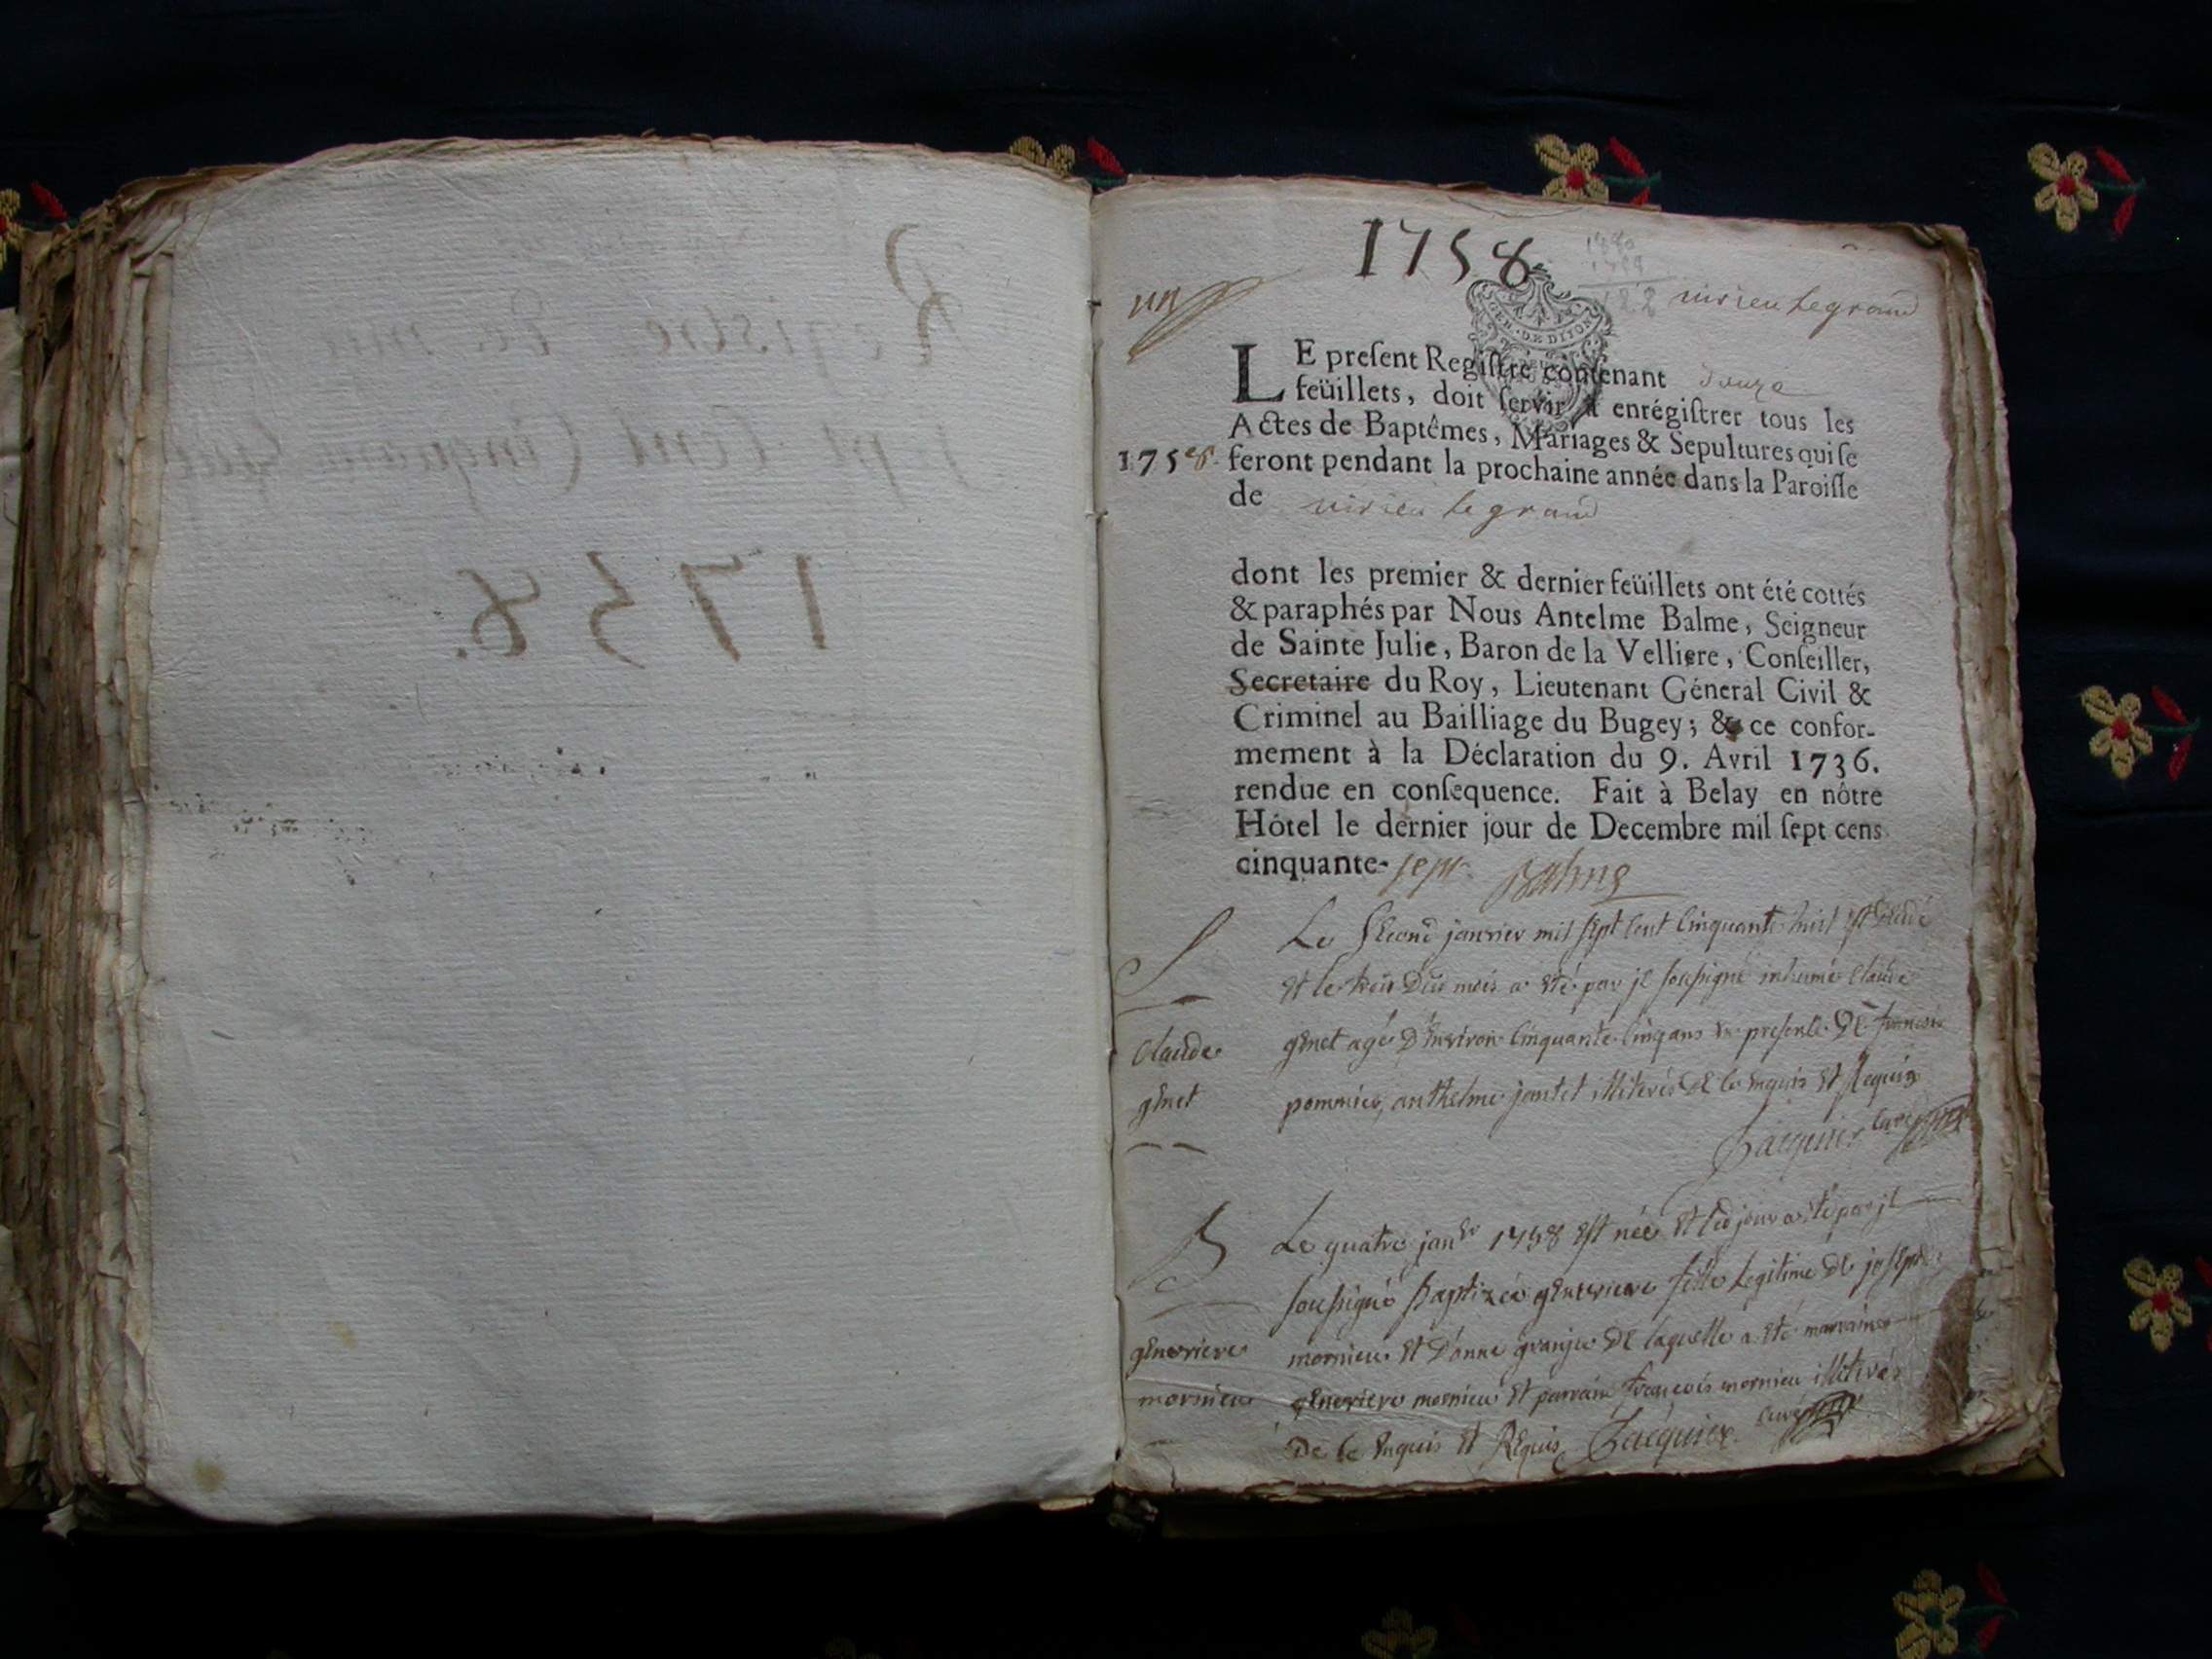 1758
un
virieu le grand
GEN. DE DIJON
LE preſent Regiſtre contenant douze
feüillets, doit ſervir à enrégiſtrer tous les
Actes de Baptêmes, Mariages & Sepultures qui ſe
1758. feront pendant la prochaine année dans la Paroiſſe
de virieu le grand
dont les premier & dernier feüillets ont été cottés
& paraphés par Nous Antelme Balme, Seigneur
de Sainte Julie, Baron de la Velliere, Conſeiller,
Secretaire du Roy, Lieutenant Géneral Civil &
Criminel au Bailliage du Bugey; & ce confor-
mement à la Déclaration du 9. Avril 1736.
rendue en conſequence. Fait à Belay en nôtre
Hôtel le dernier jour de Decembre mil ſept cens
cinquante-sept Balme
S
Le second janvier mil sept cent cinquante huit est décédé
et le trois du mois a été par je soussigné inhumé claude
claude
genet agé d'environ cinquante cinq ans en presence de francois
genet
pommier, anthelme jantet illiterés de ce enquis et requis
Jacquier curé
B
Le quatre janer 1758 est née et led jour a été par je
soussigné baptizée genevieve fille legitime de joseph
genevieve
mornieu et d'anne granju de laquelle a été marraine
mornieu
genevieve mornieu et parrain françois mornieu illiterés
de ce enquis et requis Jacquier curé